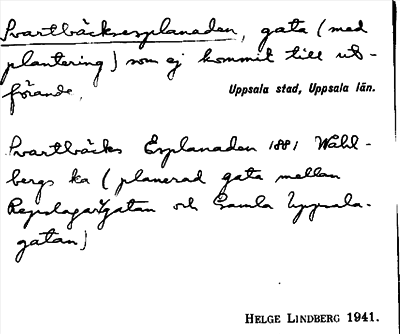 Svartbäcksesplanaden, gata (med
plantering) som ej kommit till ut-
förande.
Uppsala stad, Uppsala län.
Svartbäcks Esplanaden 1881 Wahl-
bergs ka (planerad gata mellan
Repslagaregatan och Gamla Uppsala-
gatan)
HELGE LINDBERG 1941.